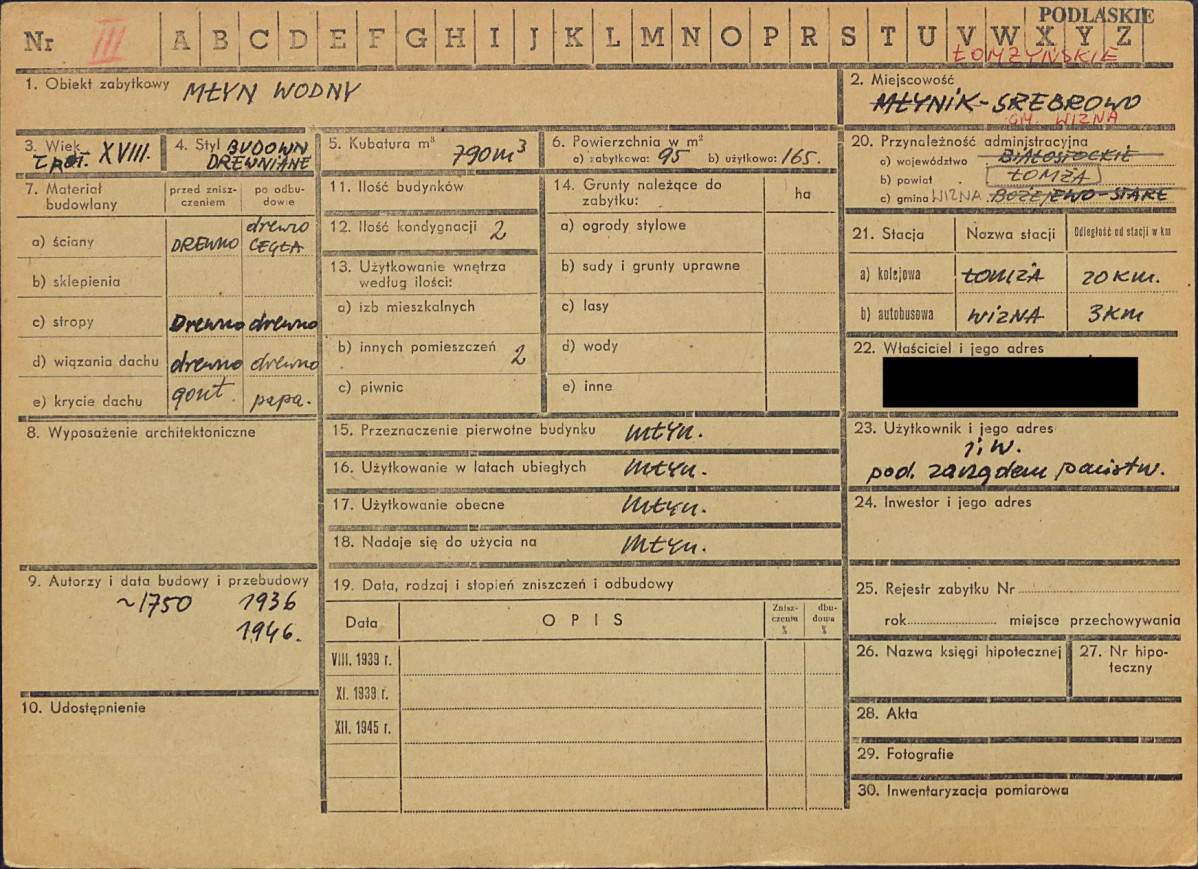 PODLASKIE
Nr III A B C D E F G H I J K L M N O P R S T U V W X Y Z
ŁOMŻYŃSKIE
1. Obiekt zabytkowy MŁYN WODNY
2. Miejscowość
MŁYNIK-SREBROWO
GM. WIZNA
3. Wiek
I poł. XVIII.
4. Styl BUDOWN
DREWNIANE
5. Kubatura m³
790 m³
6. Powierzchnia w m²
a) zabytkowa: 95 b) użytkowa: 165.
20. Przynależność administracyjna
a) województwo BIAŁOSTOCKIE
b) powiat ŁOMŻA
c) gmina WIZNA BOŻEJEWO-STARE
7. Materiał budowlany
przed znisz-
czeniem
po odbu-
dowie
a) ściany DREWNO drewno
CEGŁA
b) sklepienia
c) stropy Drewno drewno
d) wiązania dachu drewno drewno
e) krycie dachu gont. papa.
8. Wyposażenie architektoniczne
9. Autorzy i data budowy i przebudowy
~1750 1936
1946.
10. Udostępnienie
11. Ilość budynków
12. Ilość kondygnacji 2
13. Użytkowanie wnętrza
według ilości:
a) izb mieszkalnych
b) innych pomieszczeń 2
c) piwnic
14. Grunty należące do
zabytku:
ha
a) ogrody stylowe
b) sady i grunty uprawne
c) lasy
d) wody
e) inne
15. Przeznaczenie pierwotne budynku MŁYN.
16. Użytkowanie w latach ubiegłych MŁYN.
17. Użytkowanie obecne MŁYN.
18. Nadaje się do użycia na MŁYN.
19. Data, rodzaj i stopień zniszczeń i odbudowy
Data OPIS
Znisz-
czenia
%
dbu-
dowa
%
VIII. 1939 r.
XI. 1939 r.
XII. 1945 r.
21. Stacja Nazwa stacji Odległość od stacji w km
a) kolejowa ŁOMŻA 20 KM.
b) autobusowa WIZNA 3 KM
22. Właściciel i jego adres
23. Użytkownik i jego adres
j.w.
pod. zarządem państw.
24. Inwestor i jego adres
25. Rejestr zabytku Nr
rok miejsce przechowywania
26. Nazwa księgi hipotecznej
27. Nr hipo-
teczny
28. Akta
29. Fotografie
30. Inwentaryzacja pomiarowa